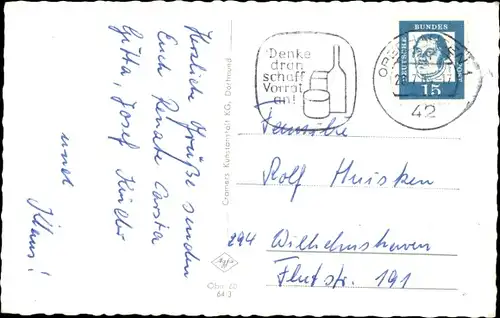 Herzliche Grüße senden
Euch Renate Carsta
Gitta, Josef Küller
und
Klaus!
Cramers Kunstanstalt KG, Dortmund
Denke
dran
schaff
Vorrat
an!
42
DEUTSCHE
BUNDES
15
Familie
Rolf Huisken
294 Wilhelmshaven
Flutstr. 191
Obn 20
64:3